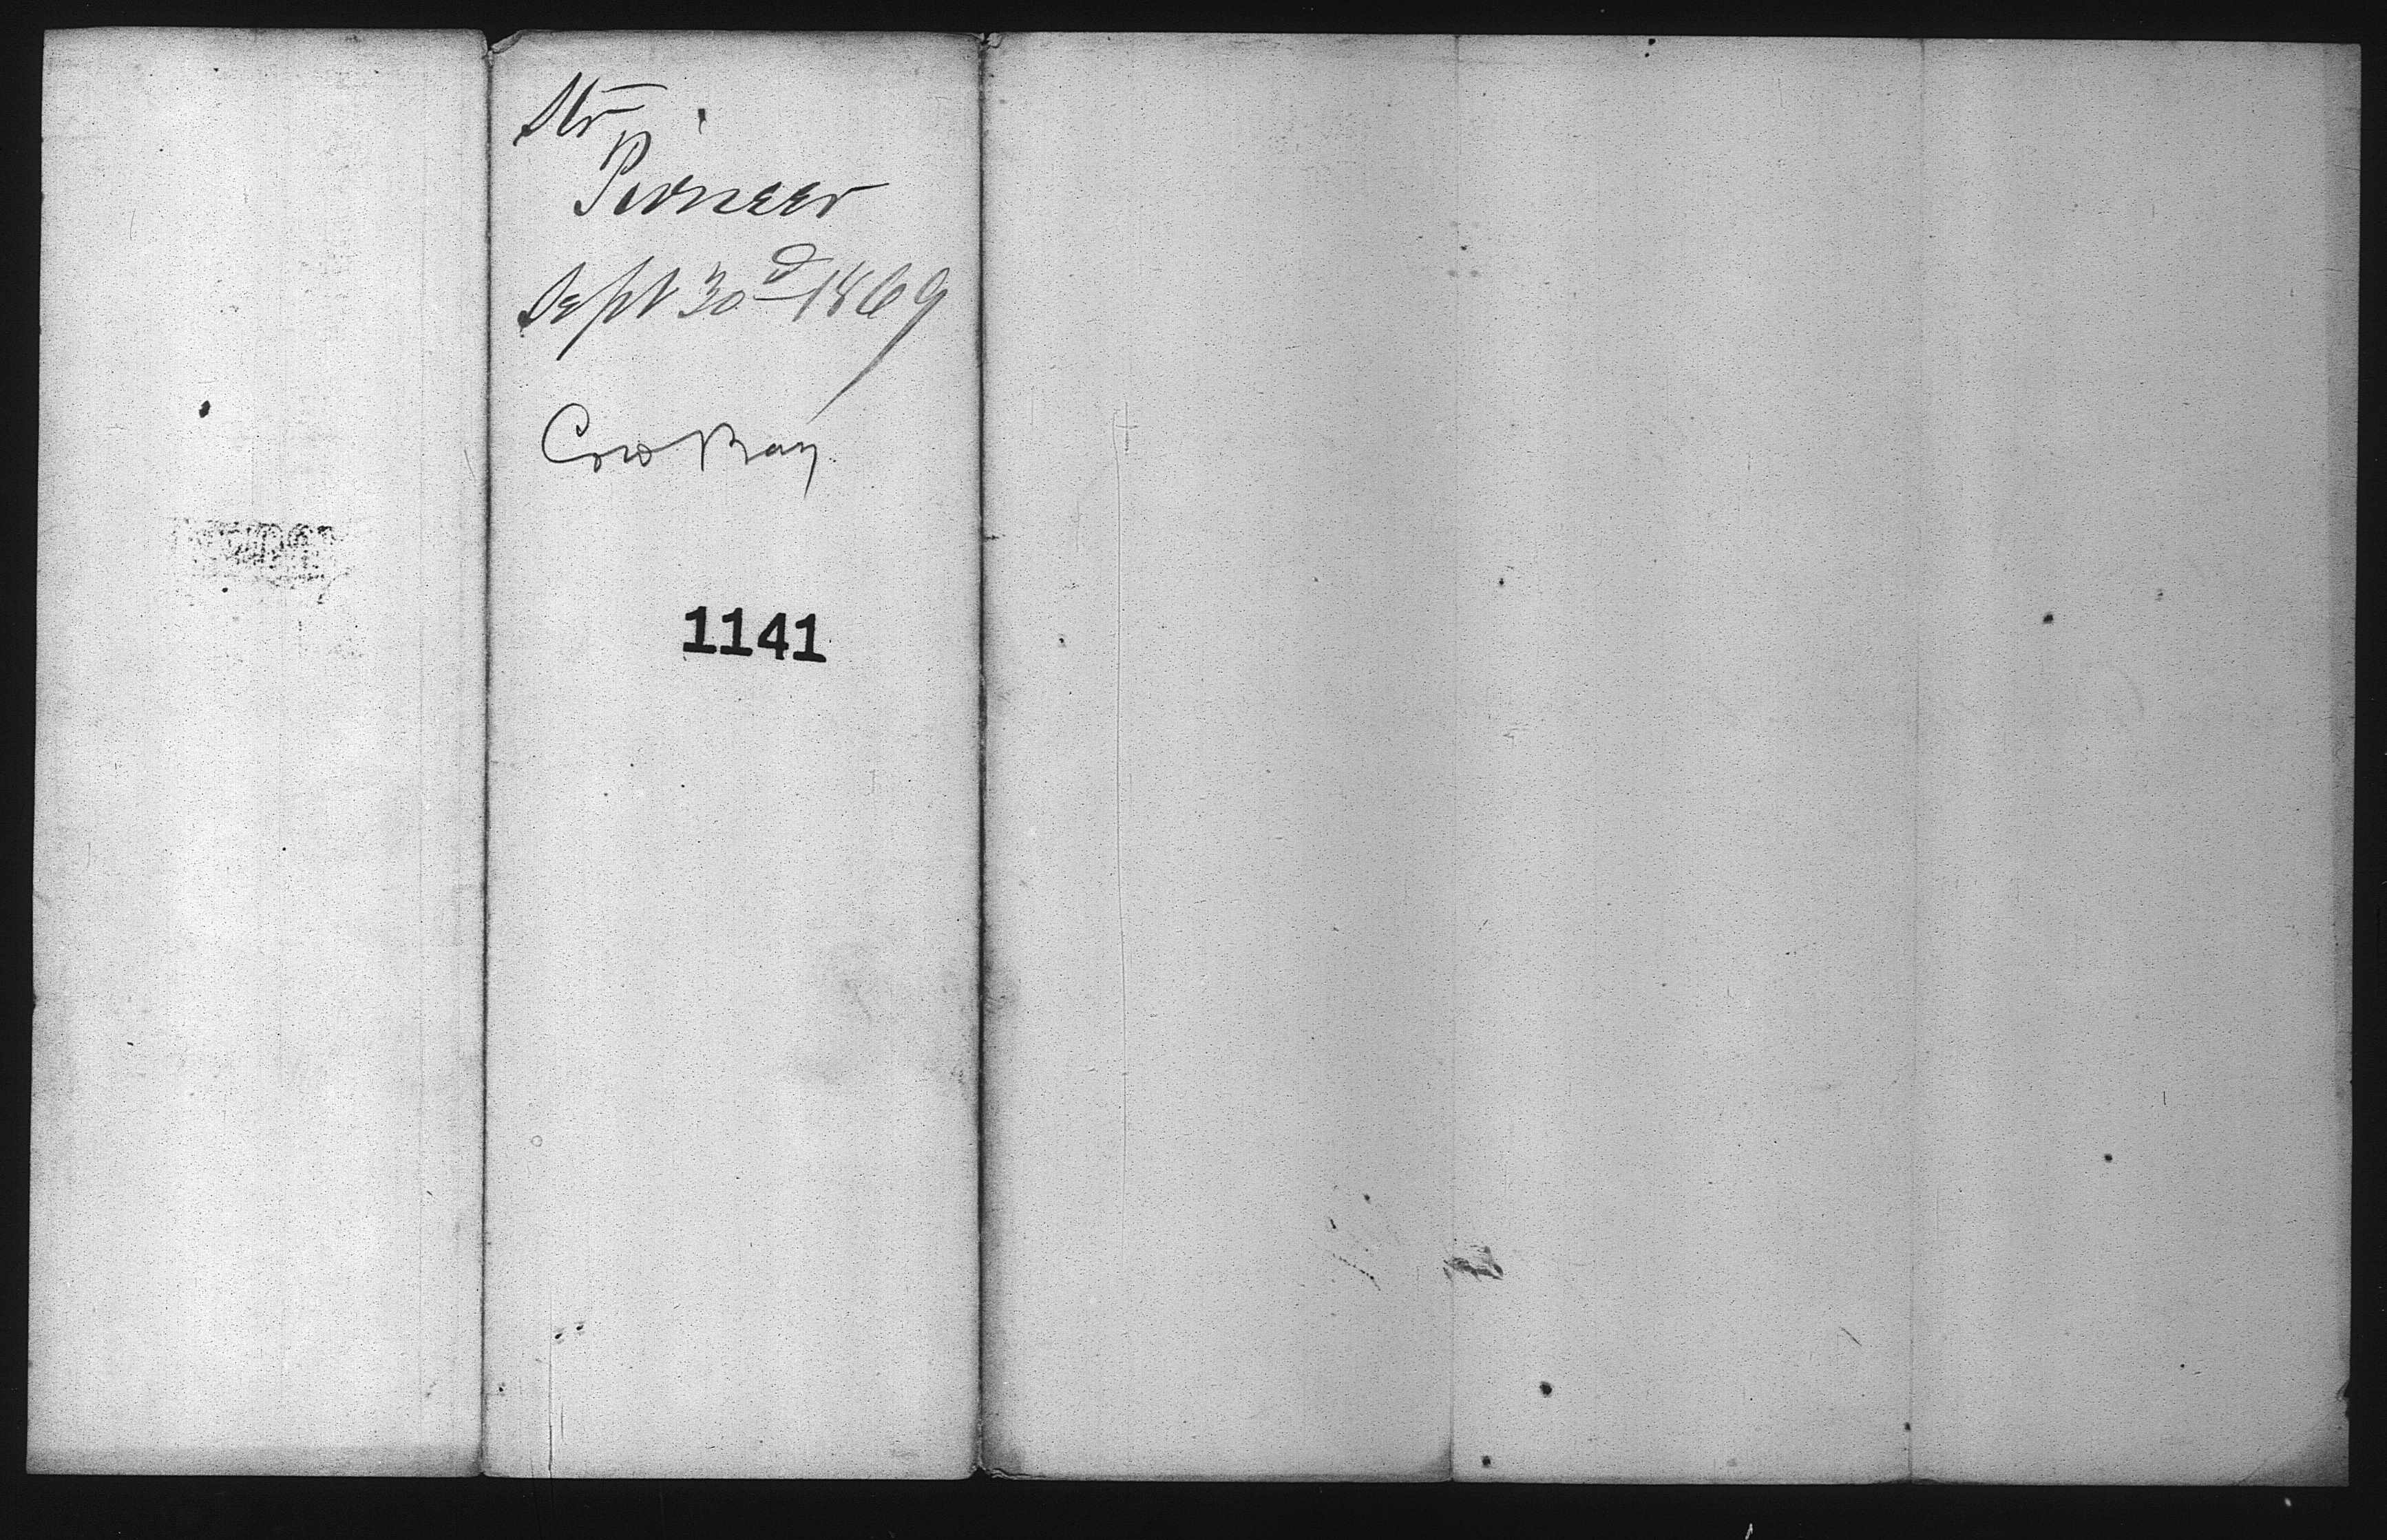 Str
Pioneer
Sept 30th 1869
Cow Bay
1141